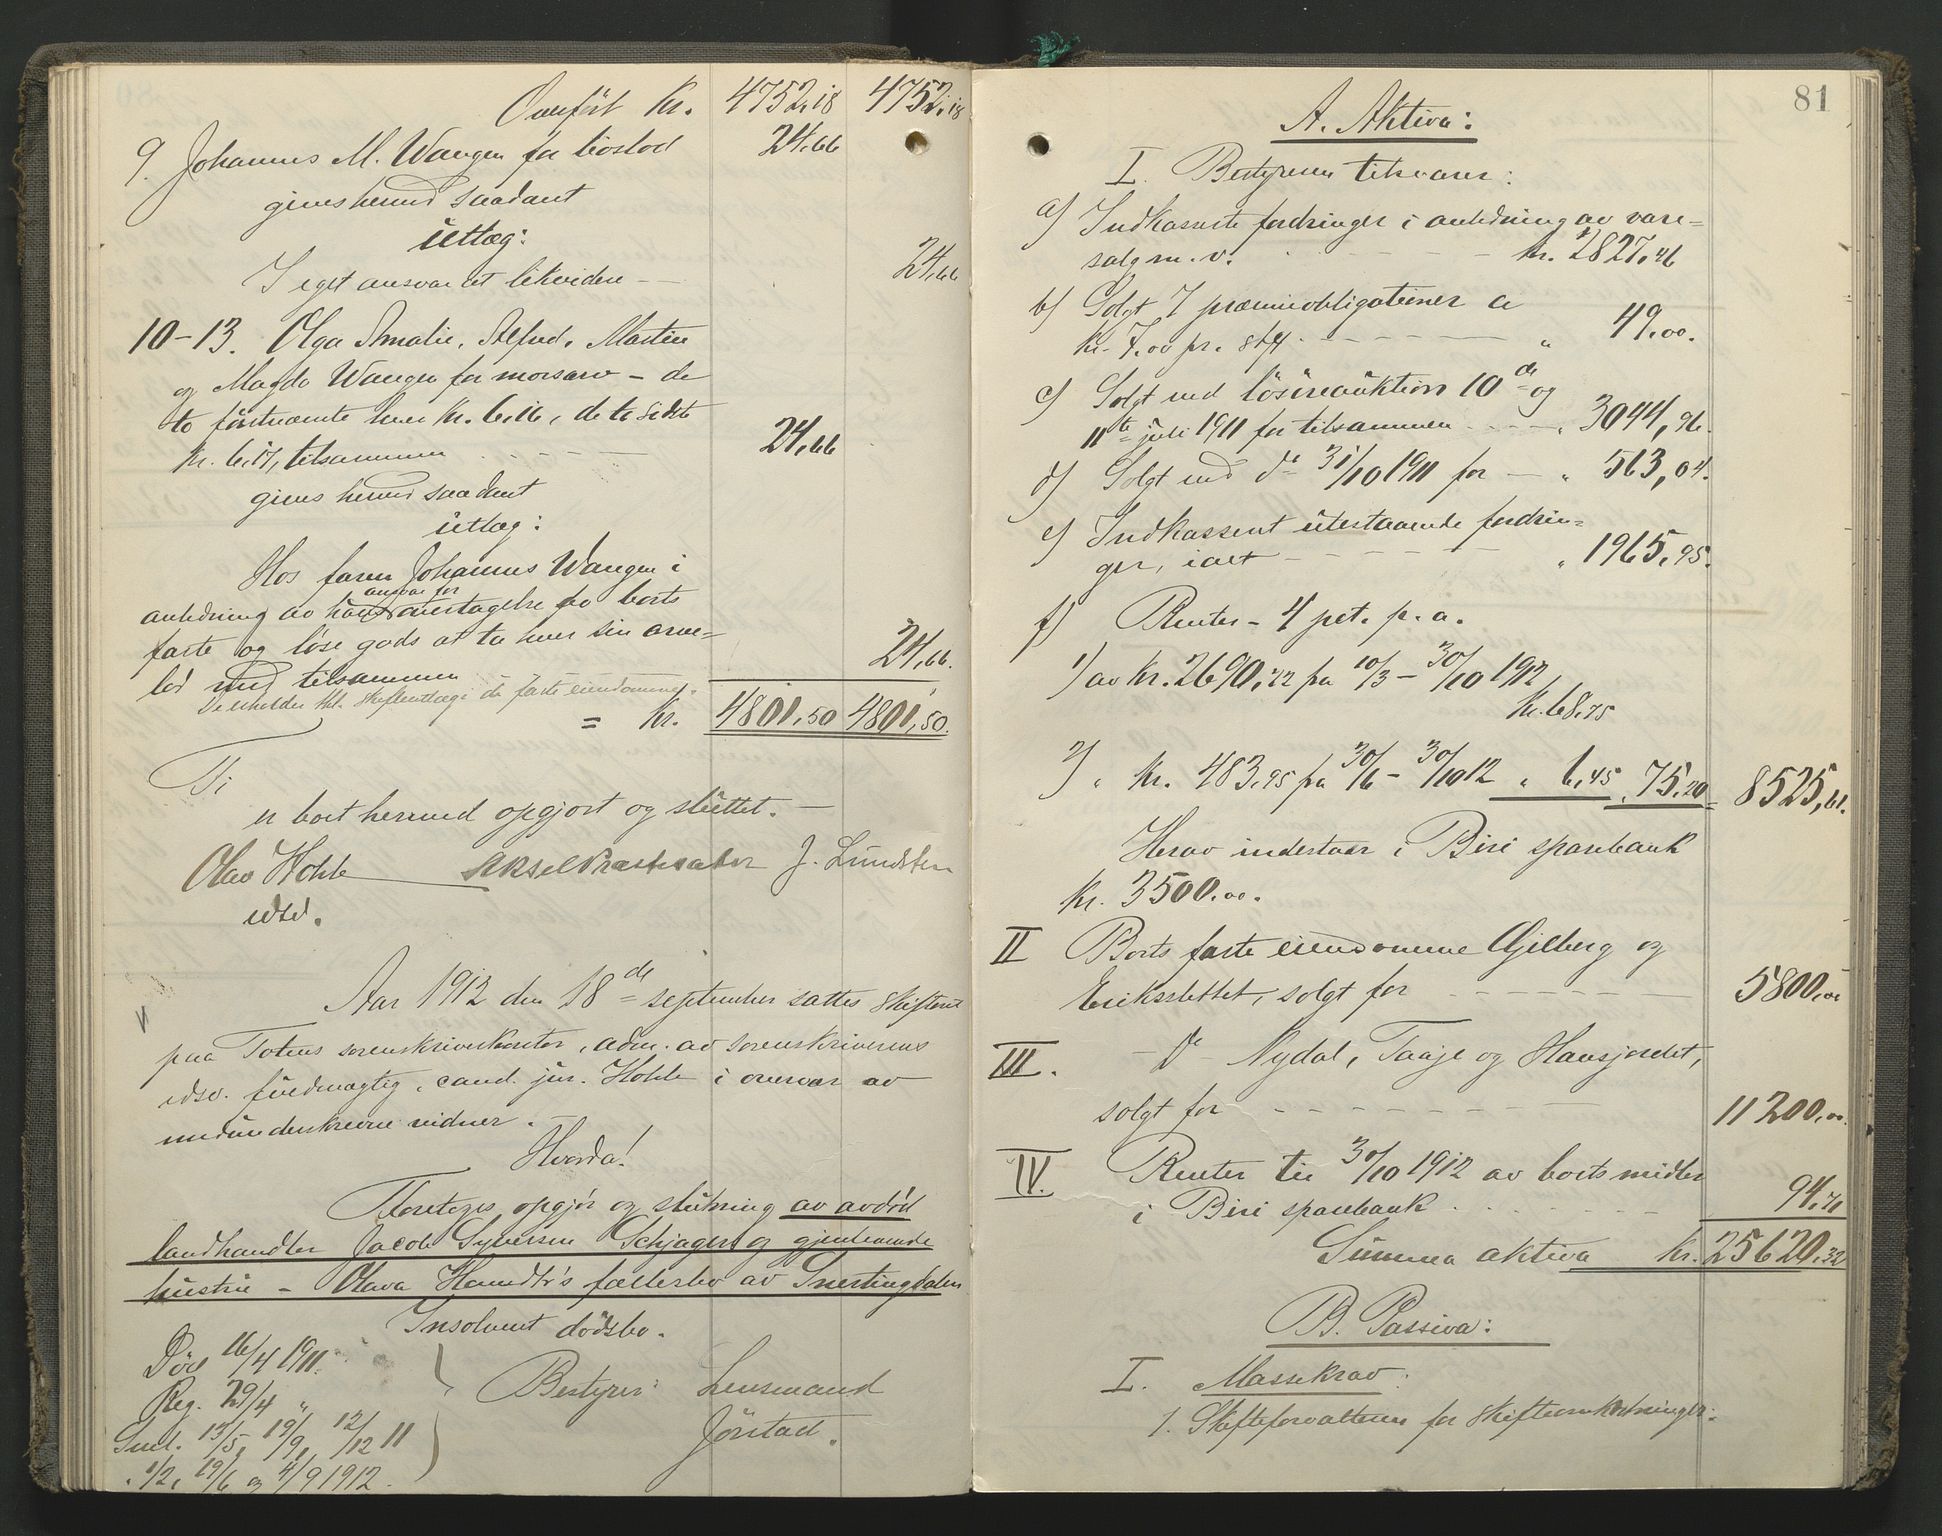 Overført Kr. 4752,18 4752,18
9. Johannes M. Wangen for boslod 24,66
gives herved saadant
utlæg:
I eget ansvar at likvidere — 24,66
10-13. Olga Amalie, Alfred, Martin
og Magda Wangen for morsarv – de
to førstnævnte hver kr. 6,16, de to sidste
kr. 6,17, tilsammen 24,66
gives herved saadant
utlæg:
Hos faren Johannes Wangen i
ansvar for
anledning av hans overtagelse av boets
faste og løse gods at ta hver sin arve-
lod med tilsammen 24,66.
De erholder skifteutlæg i de faste eiendomme.
= Kr. 4801,50 4801,50.
Ti
er boet herved opgjort og sluttet. —
Olav Hohle Aksel J. Lundsten
edsv.
Aar 1912 den 18de september sattes skifteret
paa Totens sorenskriverkontor, adm. av sorenskriverens
edsv. fuldmægtig, cand. jur. Hohle i overvær av
nedenunderskrevne vidner. —
Hvorda!
Foretoges opgjør og slutning av avdød
landhandler Jacob Syversen Schjagers og gjenlevende
hustru – Olava Hansdtr's fællesbo av Snertingdalen
Insolvent dødsbo.
Død 16/4 1911.
Reg. 29/4 "
Saml. 13/5, 19/9, 12/12 11
" 1/2, 19/6 og 4/9 1912.
Bestyrer: Lensmand
Jørstad.
81
A. Aktiva:
I. Bestyreren tilsvarer:
a) Indkasserte fordringer i anledning av vare-
salg m. v. kr. 2827,46
b) Solgt 7 præmieobligationer a
kr. 7,00 pr. stk. " 49,00.
c) Solgt ved løsøreauktion 10de og
11te juli 1911 for tilsammen " 3044,96.
d) Solgt ved do 31/10 1911 for — " 563,04.
e) Indkassert utestaaende fordrin-
ger, ialt " 1965,95.
f) Renter – 4 pct. p. a.
1) av kr. 2690,22 fra 10/3 – 30/10 1912
kr. 68,75
2) " kr. 483,95 fra 30/6 – 30/10 12 " 6,45 " 75,20 = 8525,61.
Herav indestaar i Biri sparebank
kr. 3500,00.
II Boets faste eiendomme Gjilberg og
Eriksslettet, solgt for 5800,00
III. — do — Nydal, Taaje og Hansjordet,
solgt for 11200,00.
IV. Renter til 30/10 1912 av boets midler
i Biri sparebank 94,71
Summa aktiva kr. 25620,32
B. Passiva:
I. Massekrav:
1. Skifteforvalteren for skifteomkostninger: